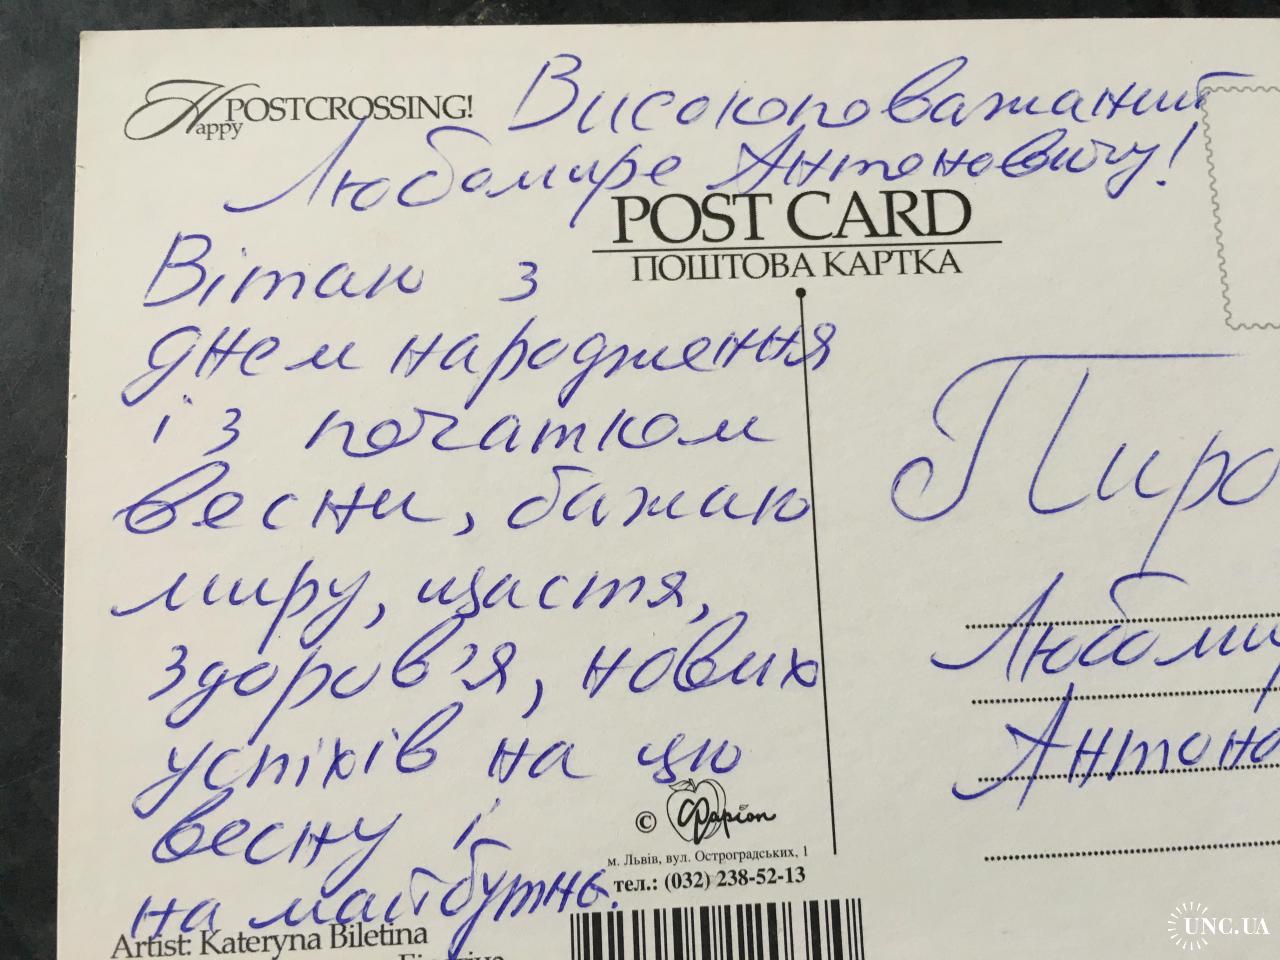 Happy POSTCROSSING!
Високоповажаний
Любомире Антоновичу!
POST CARD
ПОШТОВА КАРТКА
Вітаю з
днем народження
і з початком
весни, бажаю
миру, щастя,
здоров'я, нових
успіхів на цю
весну і
на майбутнє.
Пиро
Любоми
Антоно
© Papion
м. Львів, вул. Остроградських, 1
тел.: (032) 238-52-13
Artist: Kateryna Biletina
UNC.UA